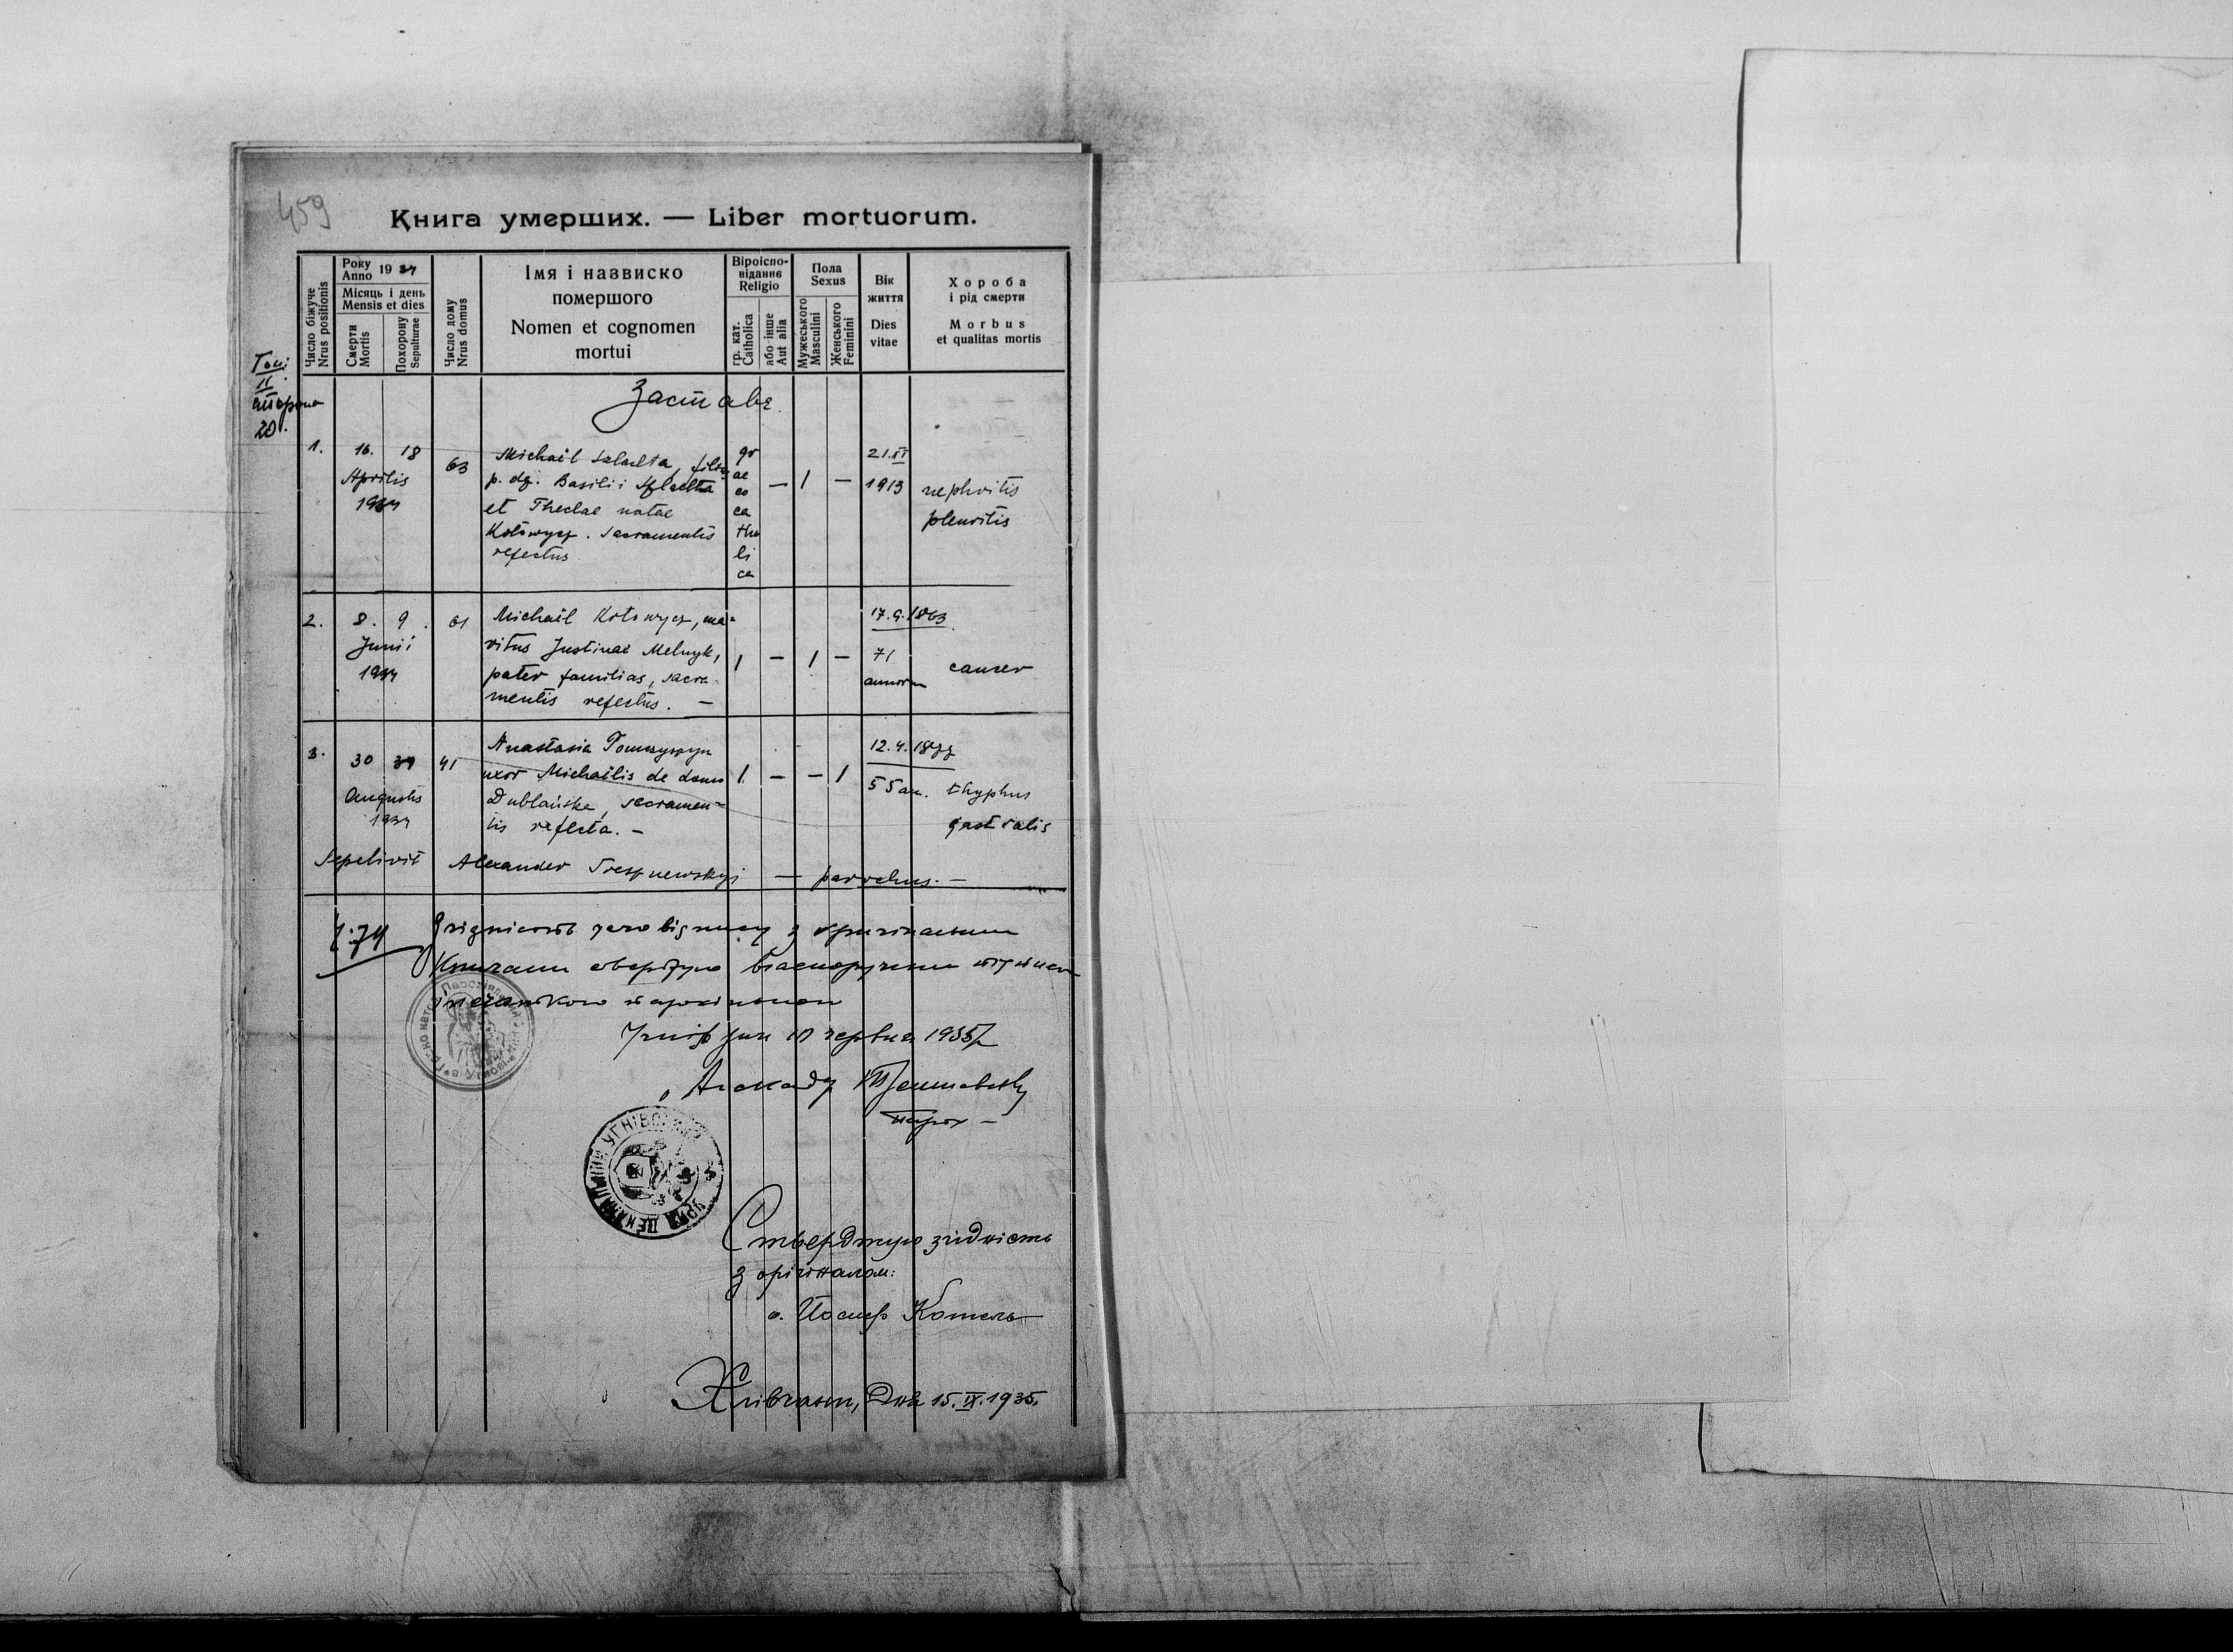 459
Книга умерших. — Liber mortuorum.
Число біжуче
Nrus positionis
Року
Anno 19 34
Місяць і день
Mensis et dies
Смерти
Mortis
Похорону
Sepulturae
Число дому
Nrus domus
Імя і назвиско
помершого
Nomen et cognomen
mortui
Віроіспо-
віданнє
Religio
гр. кат.
Catholica
або інше
Aut alia
Пола
Sexus
Мужеського
Masculini
Женського
Feminini
Вік
життя
Dies
vitae
Хороба
і рід смерти
Morbus
et qualitas mortis
Том:
II.
сторона
20.
Заставе
1. 16. 18 Aprilis 1934 63
Michaël Szlachta, filius
p. df. Basilii Szlachta
et Theclae natae
Kotowycz. Sacramentis
refectus
gr
ae
co
ca
tho
li
ca
— 1 —
21.XI
1913
nephritis
pleuritis
2. 8. 9. Junii 1934 61
Michaël Kotowycz, ma-
ritus Justinae Melnyk,
pater familias, sacra-
mentis refectus. —
1 — 1 —
17.9.1863
71
annorum
cancer
3. 30 31 Augusti 1934 41
Anastasia
uxor Michaëlis de domo
Dublańska, sacramen-
tis refecta. —
1. — — 1
12.4.18
55 an.
thyphus
gastralis
Sepelivit Alexander — parochus. —
Ч: 74
Згідність сего відпису з оригінальними
Книгами стверджую власноручним підписом
і печаткою парохіяльною
Угнів дня 10 червня 1935
о.
парох —
УРЯД ДЕКАНАЛЬНИЙ УГНІВСЬКИЙ
Стверджую згідність
з орігіналом:
о. Йосиф Котель
Хлівчани, Дня 15.IX.1935.